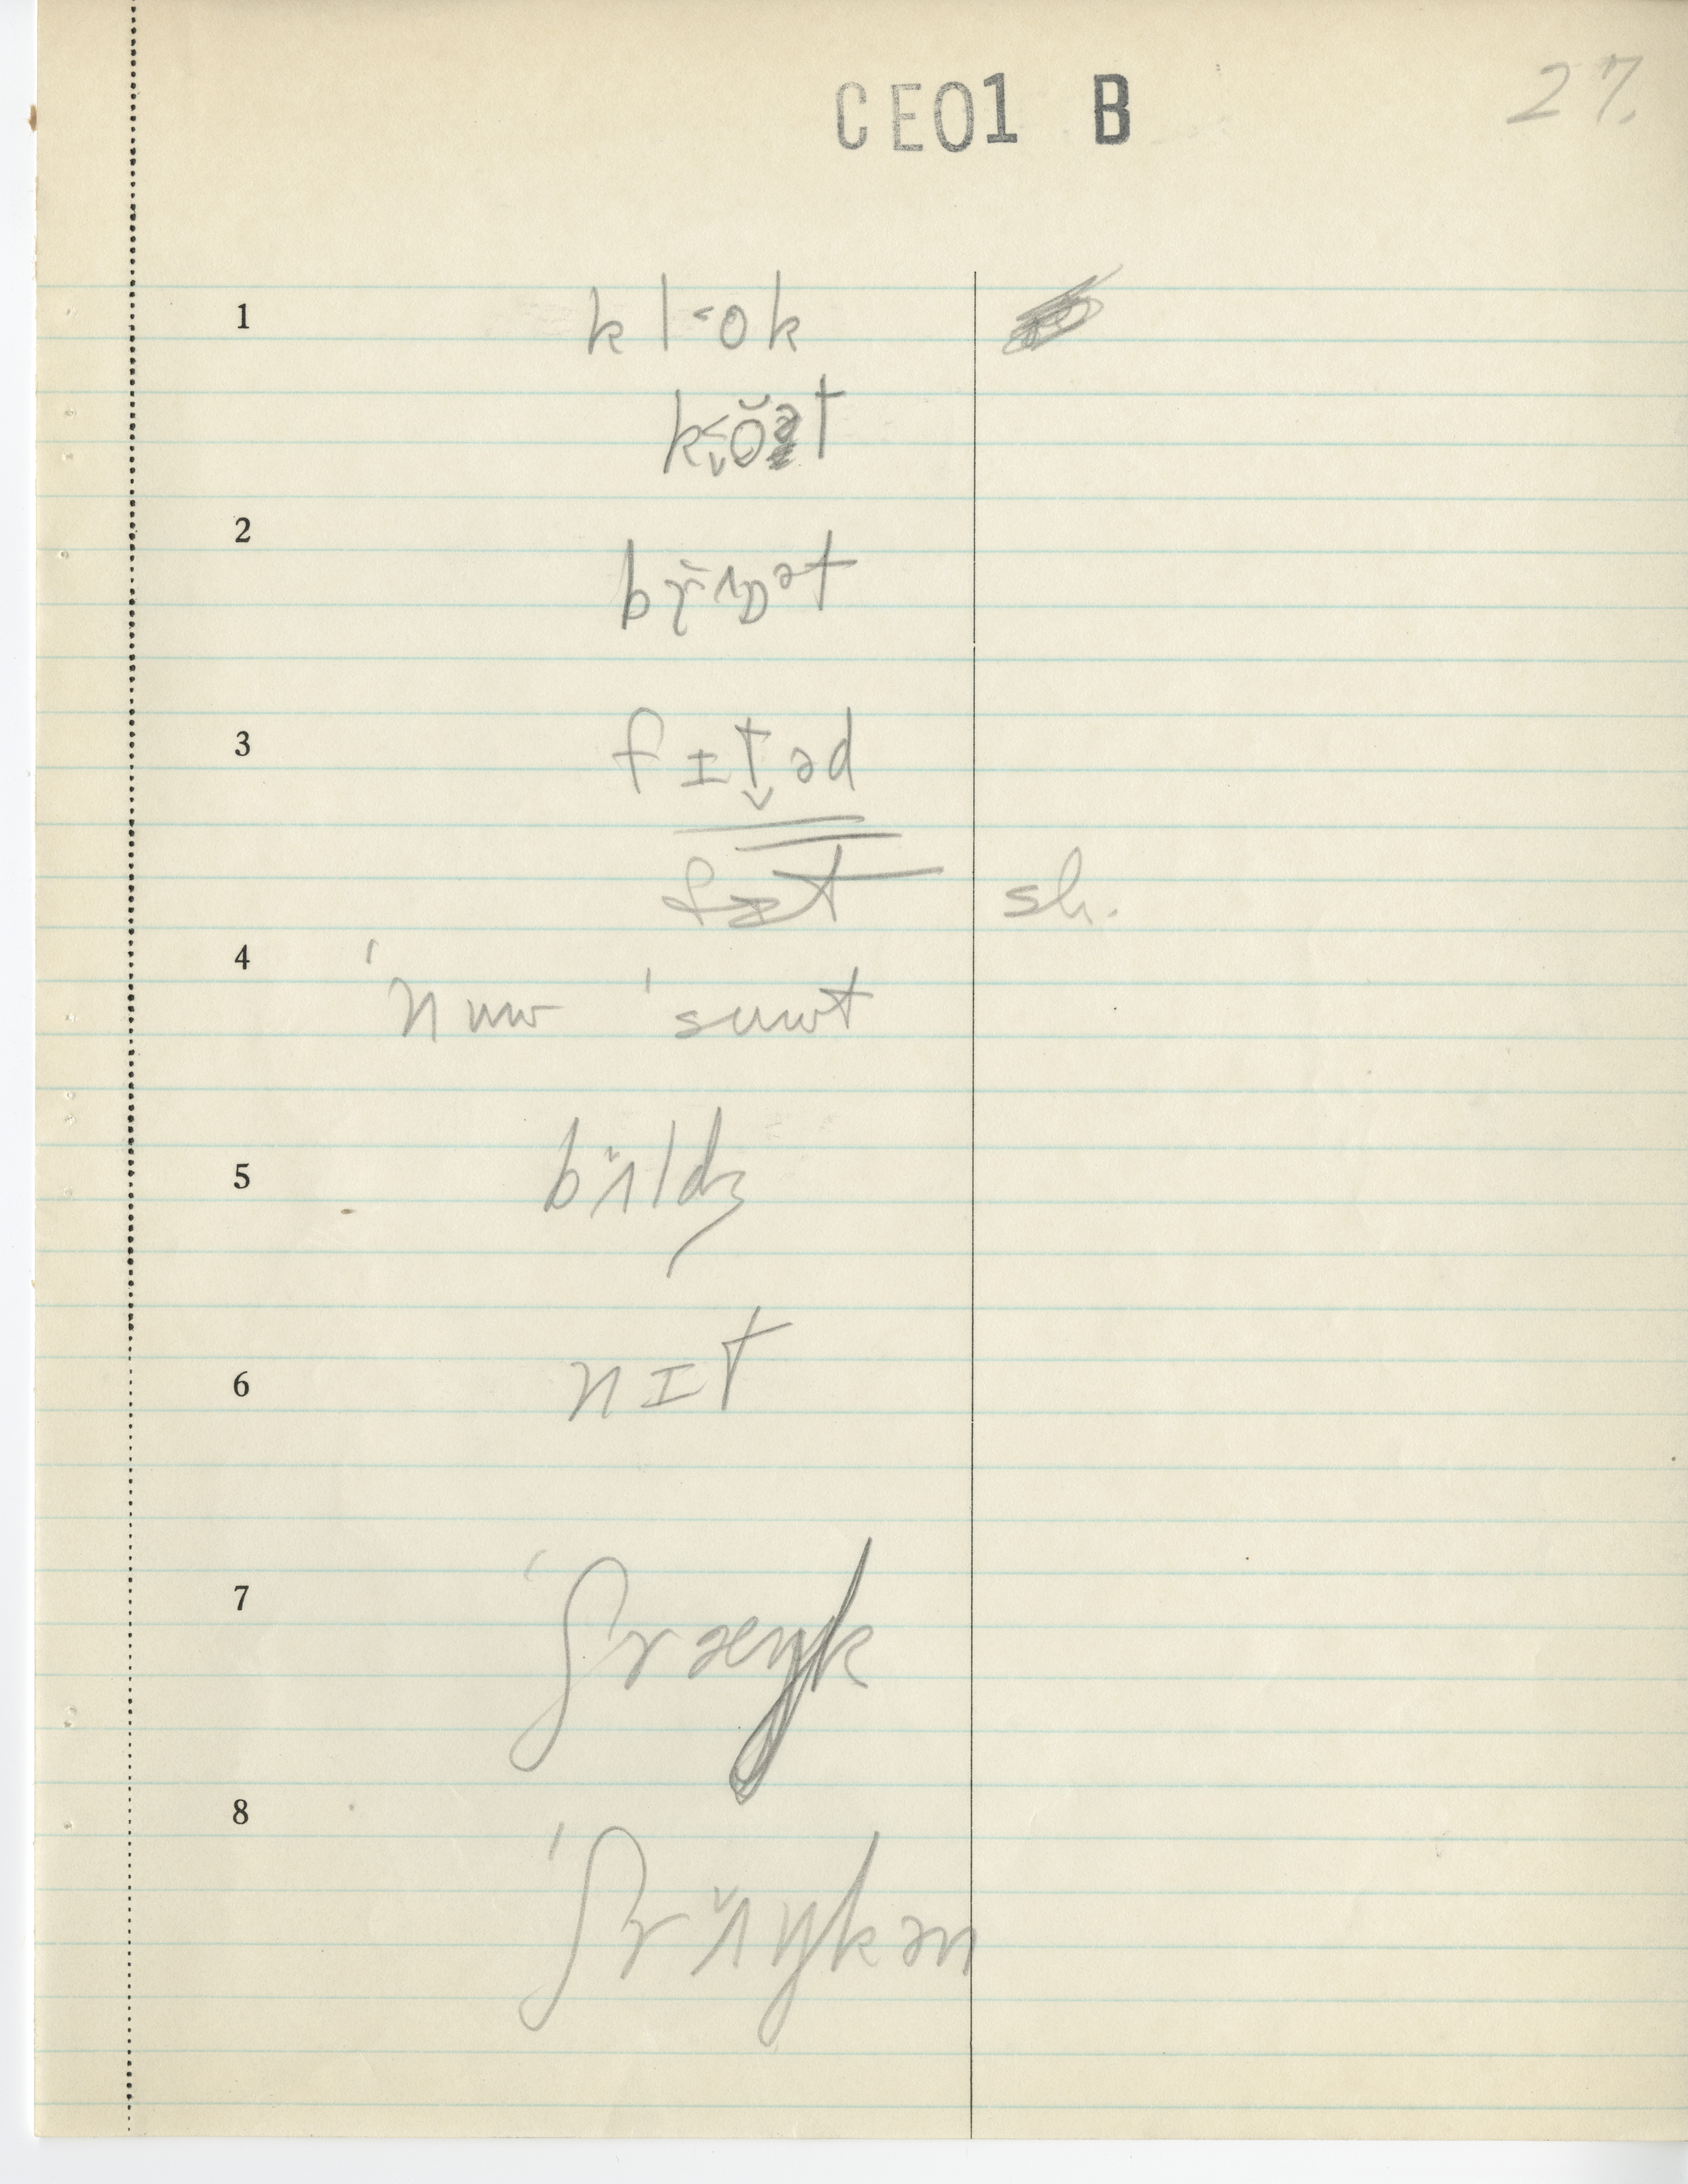 CE01 B 27.
1 kl˂ok
k˂ŏət
2
bɣ̆ʌɒət
3 fɪt̬əd
fɪt sh.
4
ˈnuw ˈsuwt
5 bʌ̆ldʒ
6 nɪt
7 ˈʃræŋk
8
ˈʃrʌ̆ŋkən